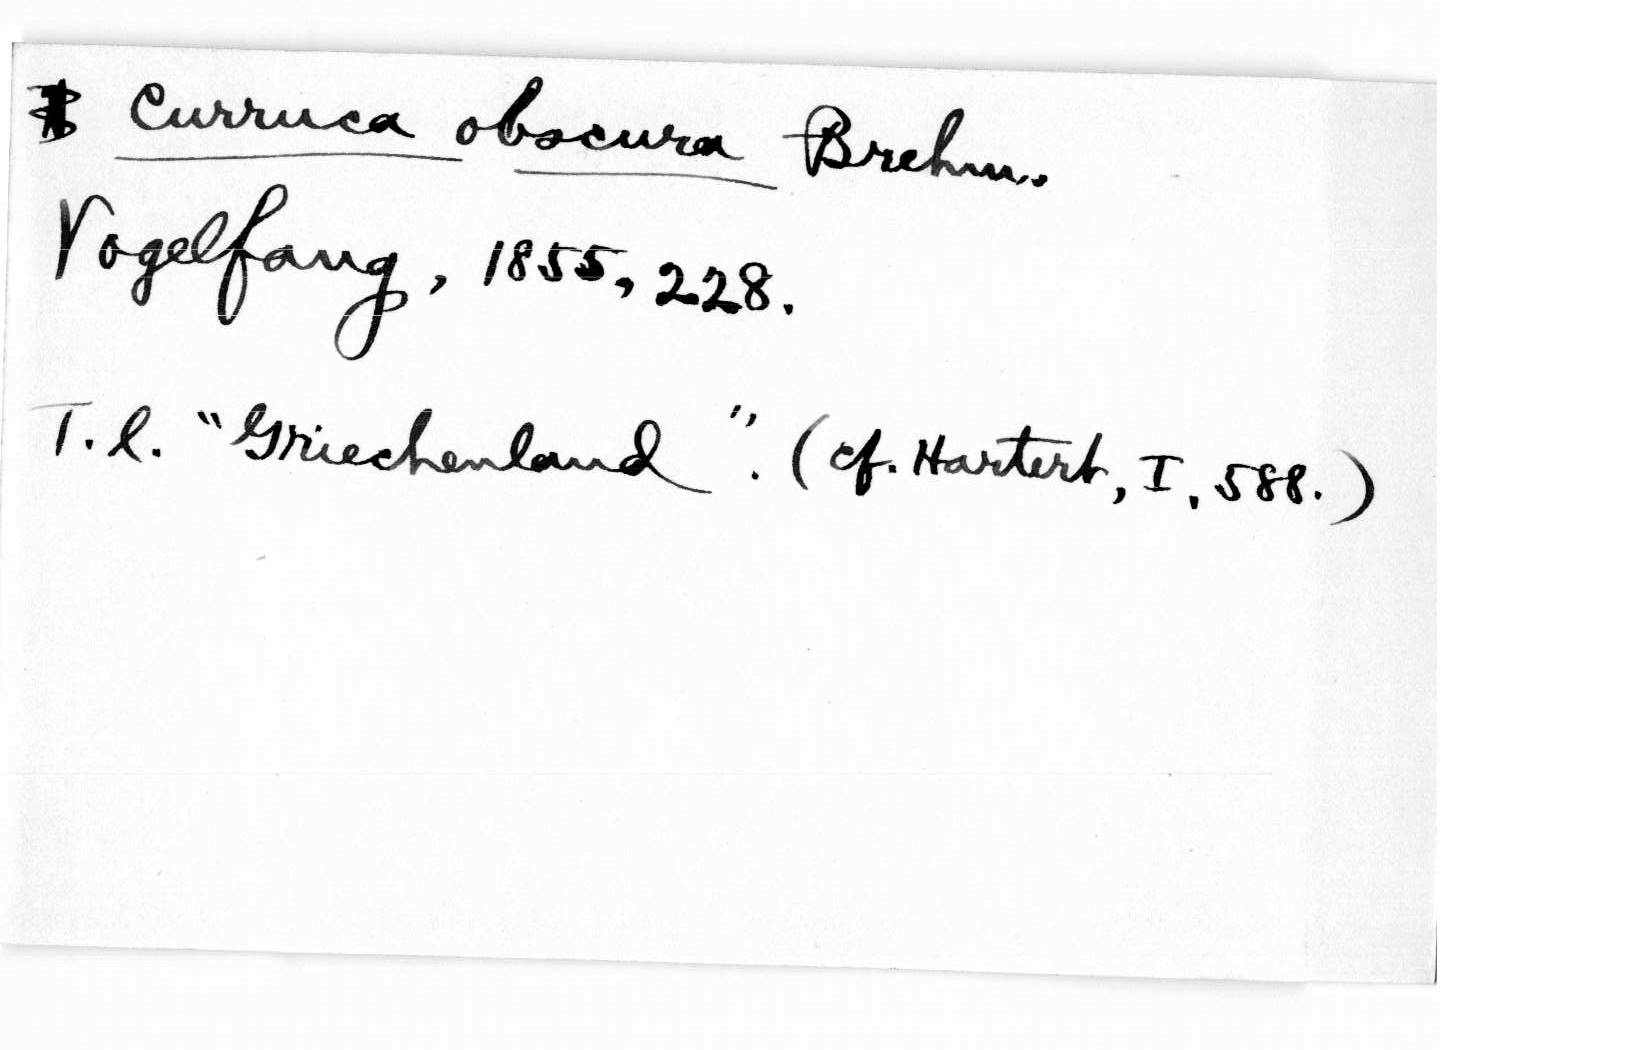 Curruca obscura Brehm.
Vogelfang, 1855, 228.
T.l. "Griechenland". (cf. Hartert, I, 588.)